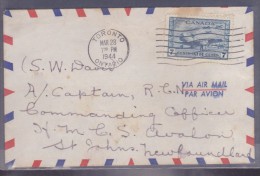 TORONTO
MAR 29
1 PM
1944
ONTARIO
CANADA
7 7
(S.W. Davis)
VIA AIR MAIL
PAR AVION
A/Captain, R.C.N.
Commanding Officer
H.M.C.S. Avalon
St Johns, Newfoundland